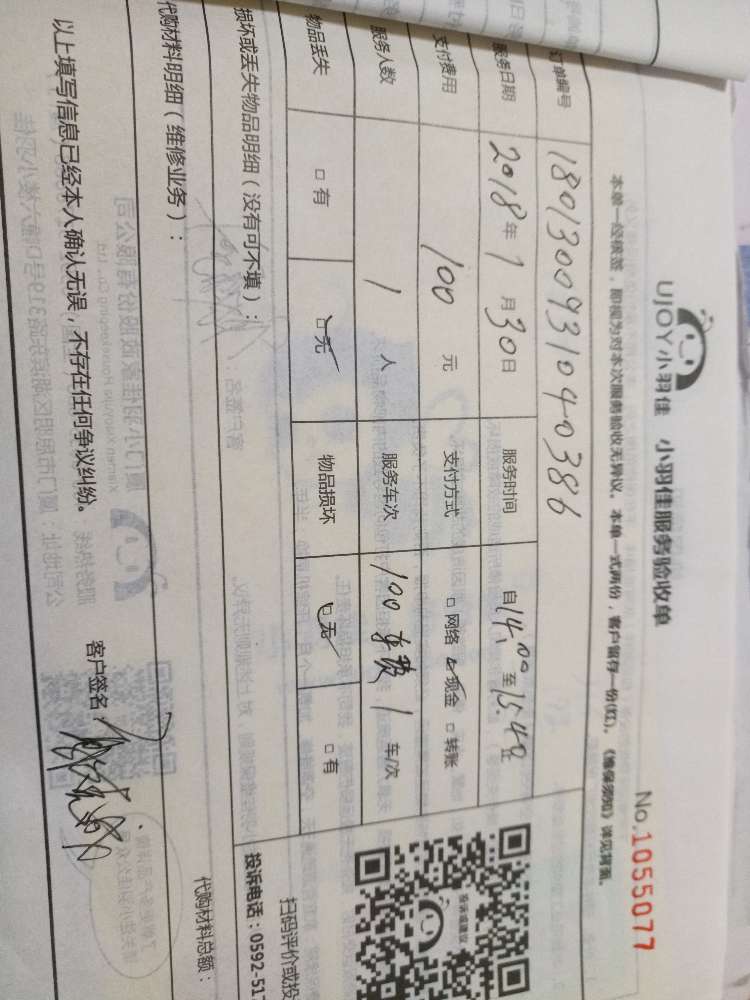 UJOY小羽佳 小羽佳服务验收单
No.1055077
本单一经核签，即视为对本次服务验收无异议。本单一式两份，客户留存一份(红)。《维保须知》详见背面。
订单编号 1801300931040386
服务日期 2018年1月30日 服务时间 自14:00至15:40止
支付费用 100元 支付方式 □网络 ☑现金 □转账
服务人数 1人 服务车次 100车费1车/次
物品丢失 □有 ☑无 物品损坏 ☑无 □有
损坏或丢失物品明细（没有可不填）：
投诉或建议
扫码评价或投
投诉电话：0592-517
代购材料明细（维修业务）：
代购材料总额：
以上填写信息已经本人确认无误，不存在任何争议纠纷。 客户签名：